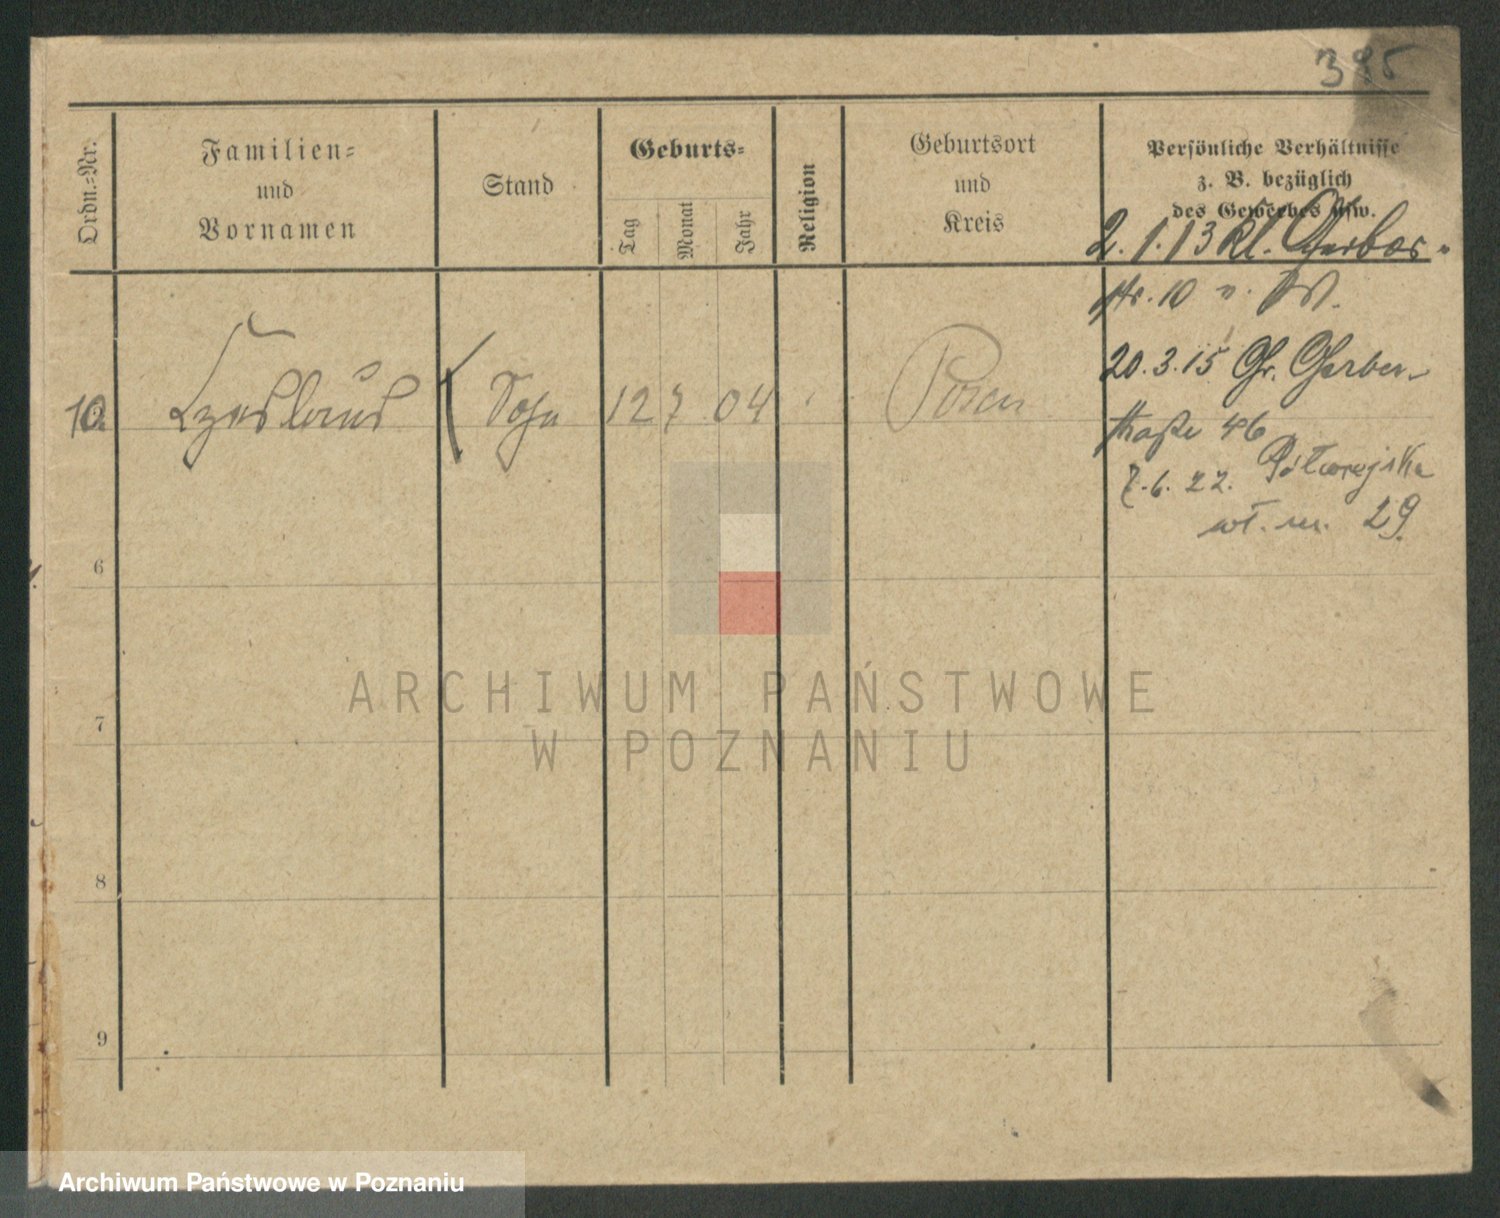 395
Ordn.-Nr.
Familien-
und
Vornamen
Stand
Geburts-
Tag
Monat
Jahr
Religion
Geburtsort
und
Kreis
Persönliche Verhältnisse
z. B. bezüglich
des Gewerbes usw.
2. 1. 13 Kl. Gerber-
str. 10 v. W.
10. Czeslaus Sohn 12 7 04 Posen
20. 3. 15 Gr. Gerber-
straße 46
7. 6. 22. Półwiejska
wł. m. 29.
6
7
8
9
ARCHIWUM PAŃSTWOWE
W POZNANIU
Archiwum Państwowe w Poznaniu